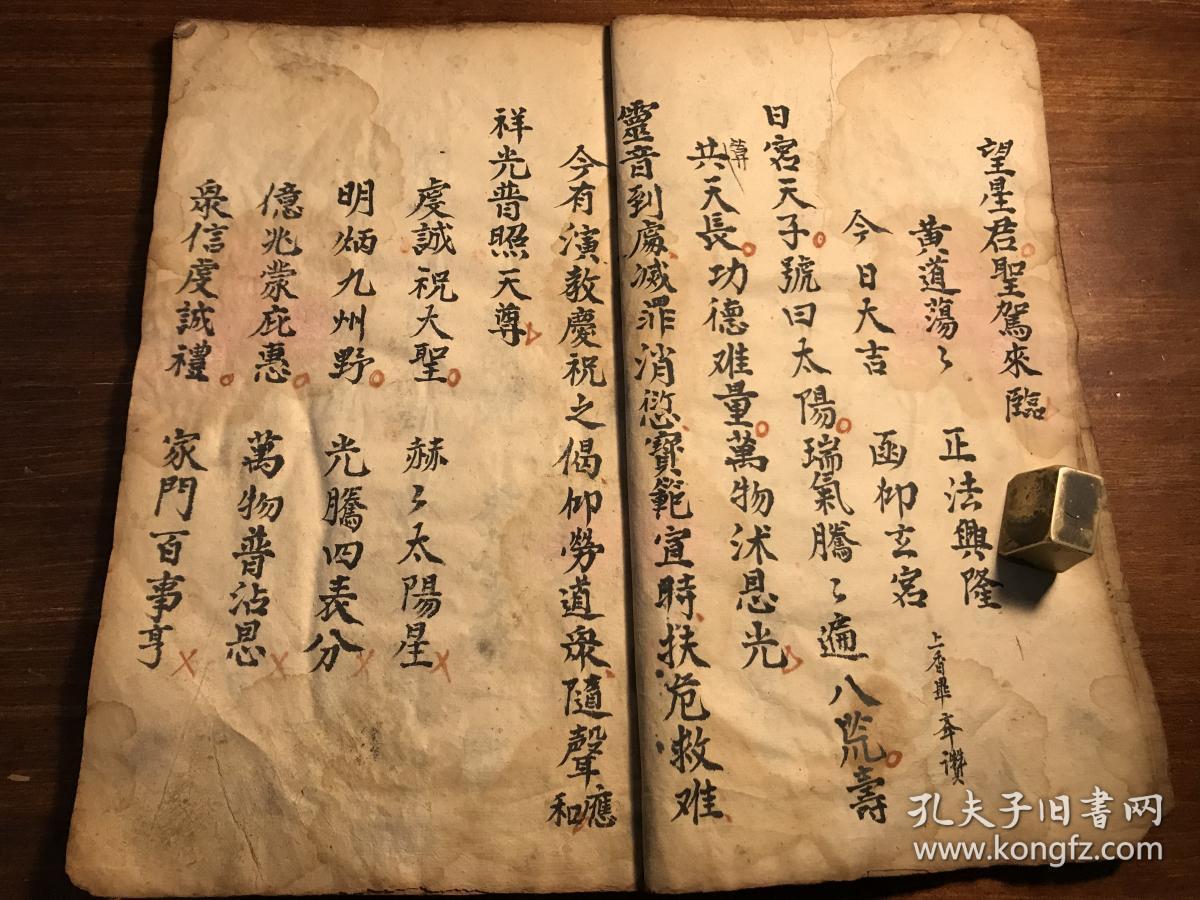 望星君聖駕來臨
黄道蕩〻 正法興隆
今日大吉 函仰玄宮 上香畢 奉讚
日宮天子號曰太陽瑞氣騰〻遍八荒壽
共筭天長功德难量萬物沭恩光
靈音到處滅罪消愆寶範宣時扶危救难
今有演教慶祝之偈仰勞道衆隨聲應和
祥光普照天尊
虔誠祝大聖 赫〻太陽星
明炳九州野 光騰四表分
億兆蒙庇惠 萬物普沾恩
衆信虔誠禮 家門百事亨
孔夫子旧书网
www.kongfz.com